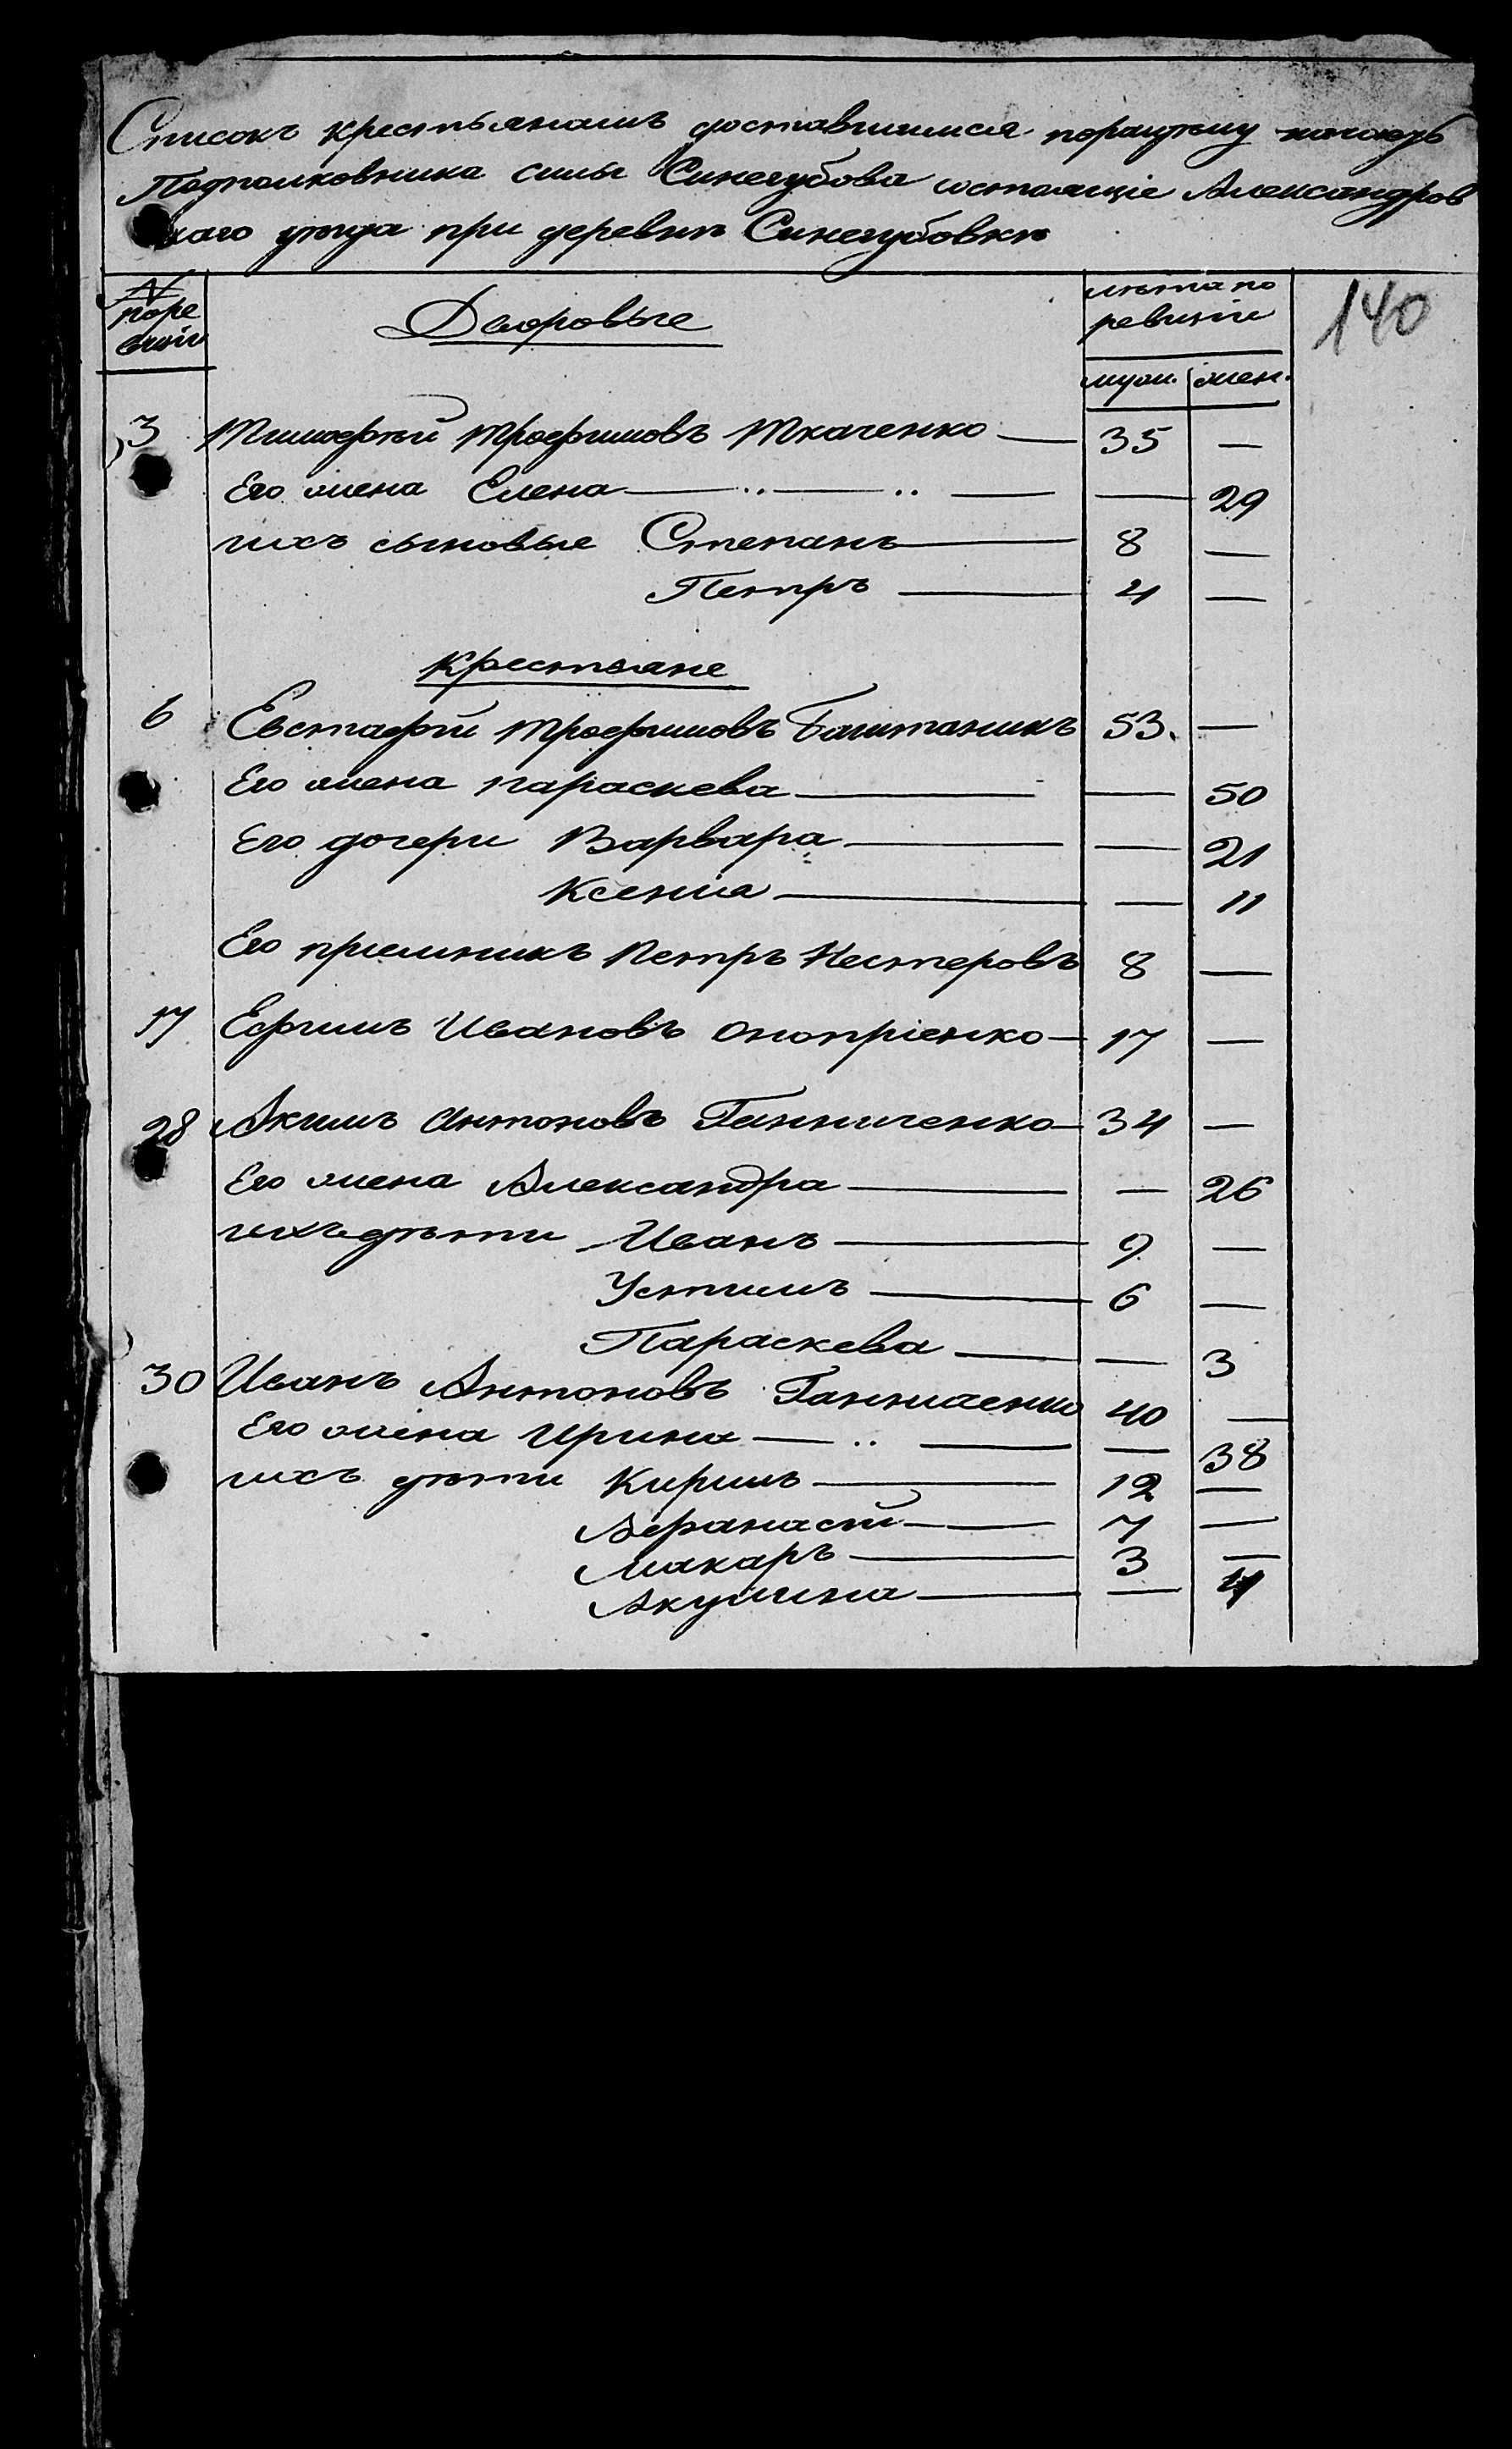 Списокъ крестьянамъ доставшимся поразделу
Подполковника Силы Синегубова состоящіе Александров
скаго уѣзда при деревнѣ Синегубовкѣ
№ поре
визіи
Дворовые
лѣта по
ревизіи
140
муж. жен.
3 Тимофѣй Трофимовъ Ткаченко — 35 —
Его жена Елена — „ — „ — — 29
ихъ сыновье Степанъ — 8 —
Петръ — 4 —
Крестьяне
6 Евстафій Трофимовъ Баштаникъ 53. —
Его жена Параскева — — 50
Его дочери Варвара — — 21
Ксенія — — 11
Его пріемникъ Петръ Нестеровъ 8 —
17 Ефимъ Ивановъ Оноприенко — 17 —
28 Акимъ Антоновъ Ганниченко — 34 —
Его жена Александра — — 26
ихъ дѣти Иванъ — 9 —
Устимъ — 6 —
Параскева — — 3
30 Иванъ Антоновъ Ганниченко 40 —
Его жена Ирина — „ — — 38
ихъ дѣти Кирилъ — 12 —
Афанасій — 7 —
Макаръ — 3 —
Акулина — — 4